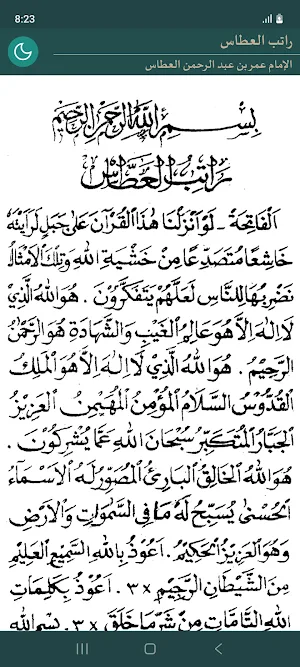 8:23
راتب العطاس
الإمام عمر بن عبد الرحمن العطاس
بِسْمِ اللهِ الرَّحْمٰنِ الرَّحِيْمِ
رَاتِبُ الْعَطَّاسْ
اَلْفَاتِحَةْ - لَوْ اَنْزَلْنَا هٰذَا الْقُرْآنَ عَلٰى جَبَلٍ لَرَاَيْتَهُ
خَاشِعًا مُتَصَدِّعًا مِنْ خَشْيَةِ اللهِ وَتِلْكَ الْاَمْثَالُ
نَضْرِبُهَا لِلنَّاسِ لَعَلَّهُمْ يَتَفَكَّرُوْنَ . هُوَ اللهُ الَّذِيْ
لَا اِلٰهَ اِلَّا هُوَ عَالِمُ الْغَيْبِ وَالشَّهَادَةِ هُوَ الرَّحْمٰنُ
الرَّحِيْمُ . هُوَ اللهُ الَّذِيْ لَا اِلٰهَ اِلَّا هُوَ الْمَلِكُ
الْقُدُّوْسُ السَّلَامُ الْمُؤْمِنُ الْمُهَيْمِنُ الْعَزِيْزُ
الْجَبَّارُ الْمُتَكَبِّرُ سُبْحَانَ اللهِ عَمَّا يُشْرِكُوْنَ .
هُوَ اللهُ الْخَالِقُ الْبَارِئُ الْمُصَوِّرُ لَهُ الْاَسْمَاءُ
الْحُسْنٰى يُسَبِّحُ لَهُ مَا فِي السَّمٰوَاتِ وَالْاَرْضِ
وَهُوَ الْعَزِيْزُ الْحَكِيْمُ . اَعُوْذُ بِاللهِ السَّمِيْعِ الْعَلِيْمِ
مِنَ الشَّيْطَانِ الرَّجِيْمِ ×٣ . اَعُوْذُ بِكَلِمَاتِ
اللهِ التَّامَّاتِ مِنْ شَرِّ مَا خَلَقَ ×٣ . بِسْمِ اللهِ